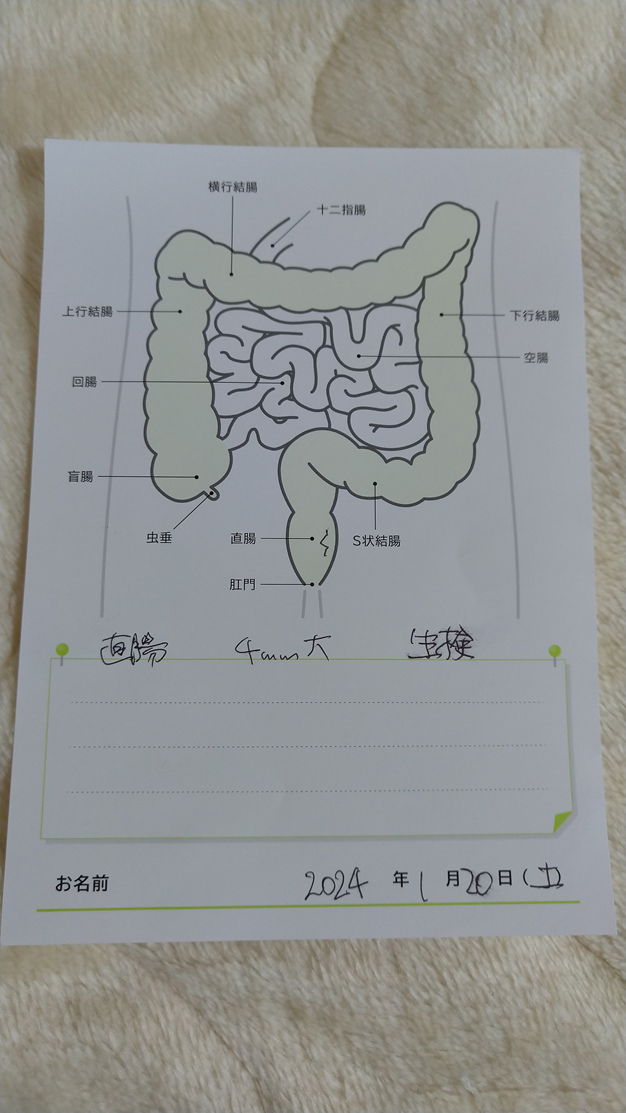 横行結腸
十二指腸
上行結腸
下行結腸
空腸
回腸
盲腸
虫垂
直腸
S状結腸
肛門
直腸 4mm大 生検
お名前 2024年1月20日(土)